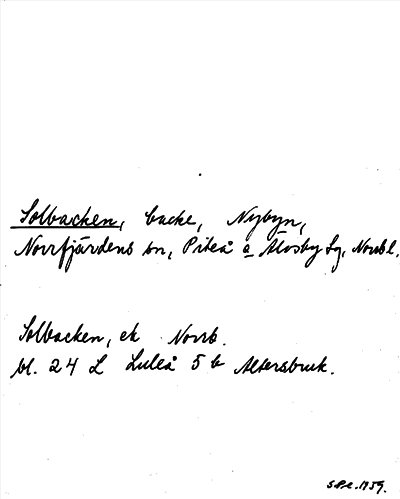 Solbacken, backe, Nybyn,
Norrfjärdens sn, Piteå o Älvsby tg, Norrb l.
Solbacken, ek Norrb.
bl. 24 L Luleå 5 b Altersbruk.
1959.